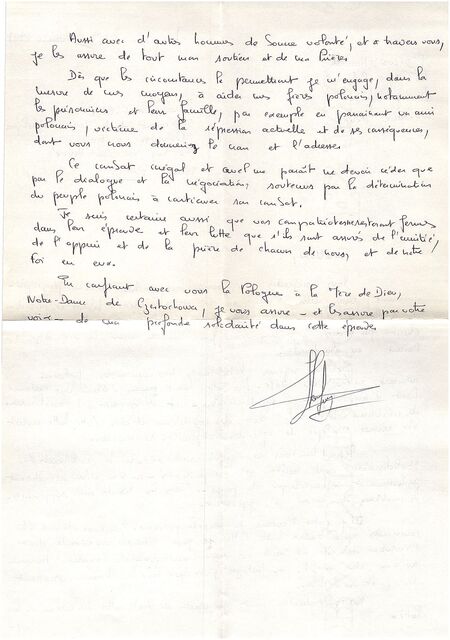 Aussi avec d'autres hommes de bonne volonté, et à travers vous,
je les assure de tout mon soutien et de ma prière.
Dès que les circonstances le permettront je m'engage, dans la
mesure de mes moyens, à aider mes frères polonais, notamment
les prisonniers et leur famille, par exemple en parrainant un ami
polonais, victime de la répression actuelle et de ses conséquences,
dont vous nous donnerez le nom et l'adresse.
Ce combat inégal et cruel me paraît ne devoir céder que
par le dialogue et la négociation, soutenus par la détermination
du peuple polonais à continuer son combat.
Je suis certaine aussi que vos compatriotes resteront fermes
dans leur épreuve et leur lutte que s'ils sont assurés de l'amitié,
de l'appui et de la prière de chacun de nous, et de notre
foi en eux.
En confiant avec vous la Pologne à la Mère de Dieu,
Notre-Dame de Czestochowa, je vous assure - et les assure par votre
voix - de ma profonde solidarité dans cette épreuve